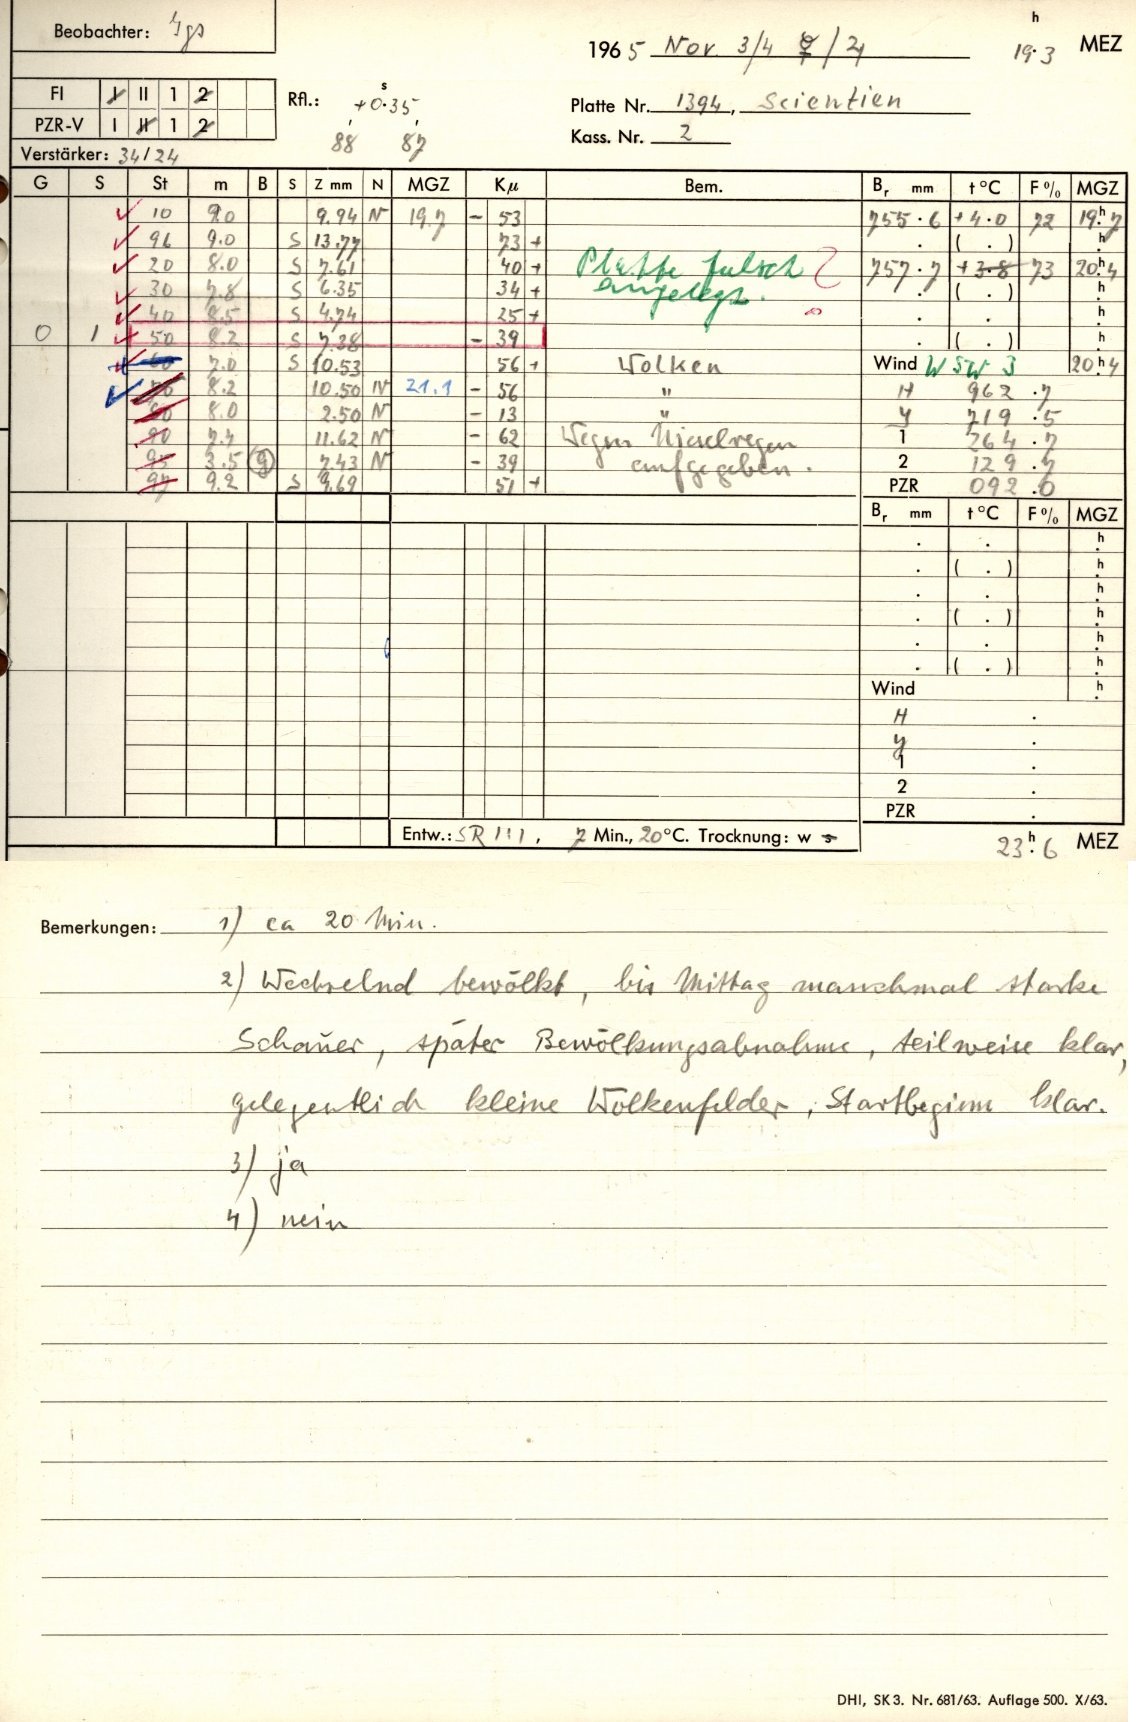 Beobachter: Jgs
1965 Nov 3/4 ☿ / ♃ 19h.3 MEZ
FI I II 1 2
PZR-V I II 1 2
Rfl.: +0s.35
88 87
Platte Nr. 1394, Scientien
Kass. Nr. 2
Verstärker: 34/24
G S St m B S Z mm N MGZ Kµ Bem. Br mm t °C F % MGZ
10 9.0 9.94 N 19.7 - 53 755.6 +4.0 72 19h.7
96 9.0 S 13.77 73 + . ( . ) h.
20 8.0 S 7.61 40 + Platte falsch 757.7 +3.8 73 20h.4
30 7.8 S 6.35 34 + angelegt. . ( . ) h.
40 8.5 S 4.74 25 + . . h.
0 1 50 8.2 S 7.28 - 39 . ( . ) h.
60 7.0 S 10.53 56 + Wolken Wind WSW 3 20h.4
70 8.2 10.50 N 21.1 - 56 " H 962.7
80 8.0 2.50 N - 13 " y 719.5
90 7.4 11.62 N - 62 Wegen Nieselregen 1 264.7
95 3.5 (g) 7.43 N - 39 aufgegeben. 2 129.7
97 9.2 S 9.69 51 + PZR 092.0
Br mm t °C F % MGZ
. . h.
. ( . ) h.
. . h.
. ( . ) h.
. . h.
. ( . ) h.
Wind h.
H .
y .
1 .
2 .
PZR .
Entw.: SR III, 7 Min., 20°C. Trocknung: w s
23h.6 MEZ
Bemerkungen: 1) ca 20 Min.
2) Wechselnd bewölkt, bis Mittag manchmal starke
Schauer, später Bewölkungsabnahme, teilweise klar,
gelegentlich kleine Wolkenfelder, Startbeginn klar.
3) ja
4) nein
DHI, SK 3. Nr. 681/63. Auflage 500. X/63.